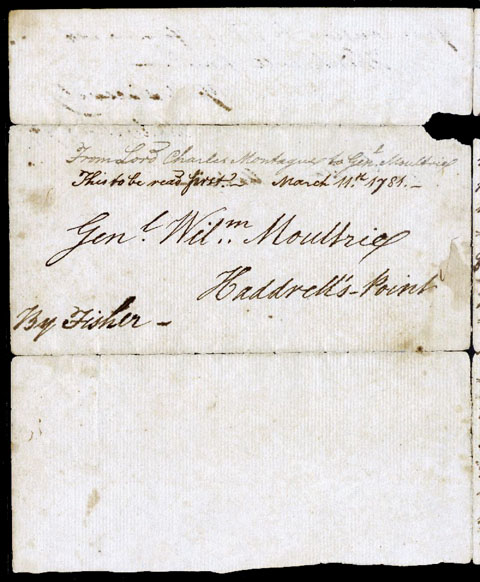 From Lord Charles Montague to Genl. Moultrie
This to be read first. — March 11th. 1781. —
Genl. Wilm. Moultrie
Haddrell's-Point
By Fisher —